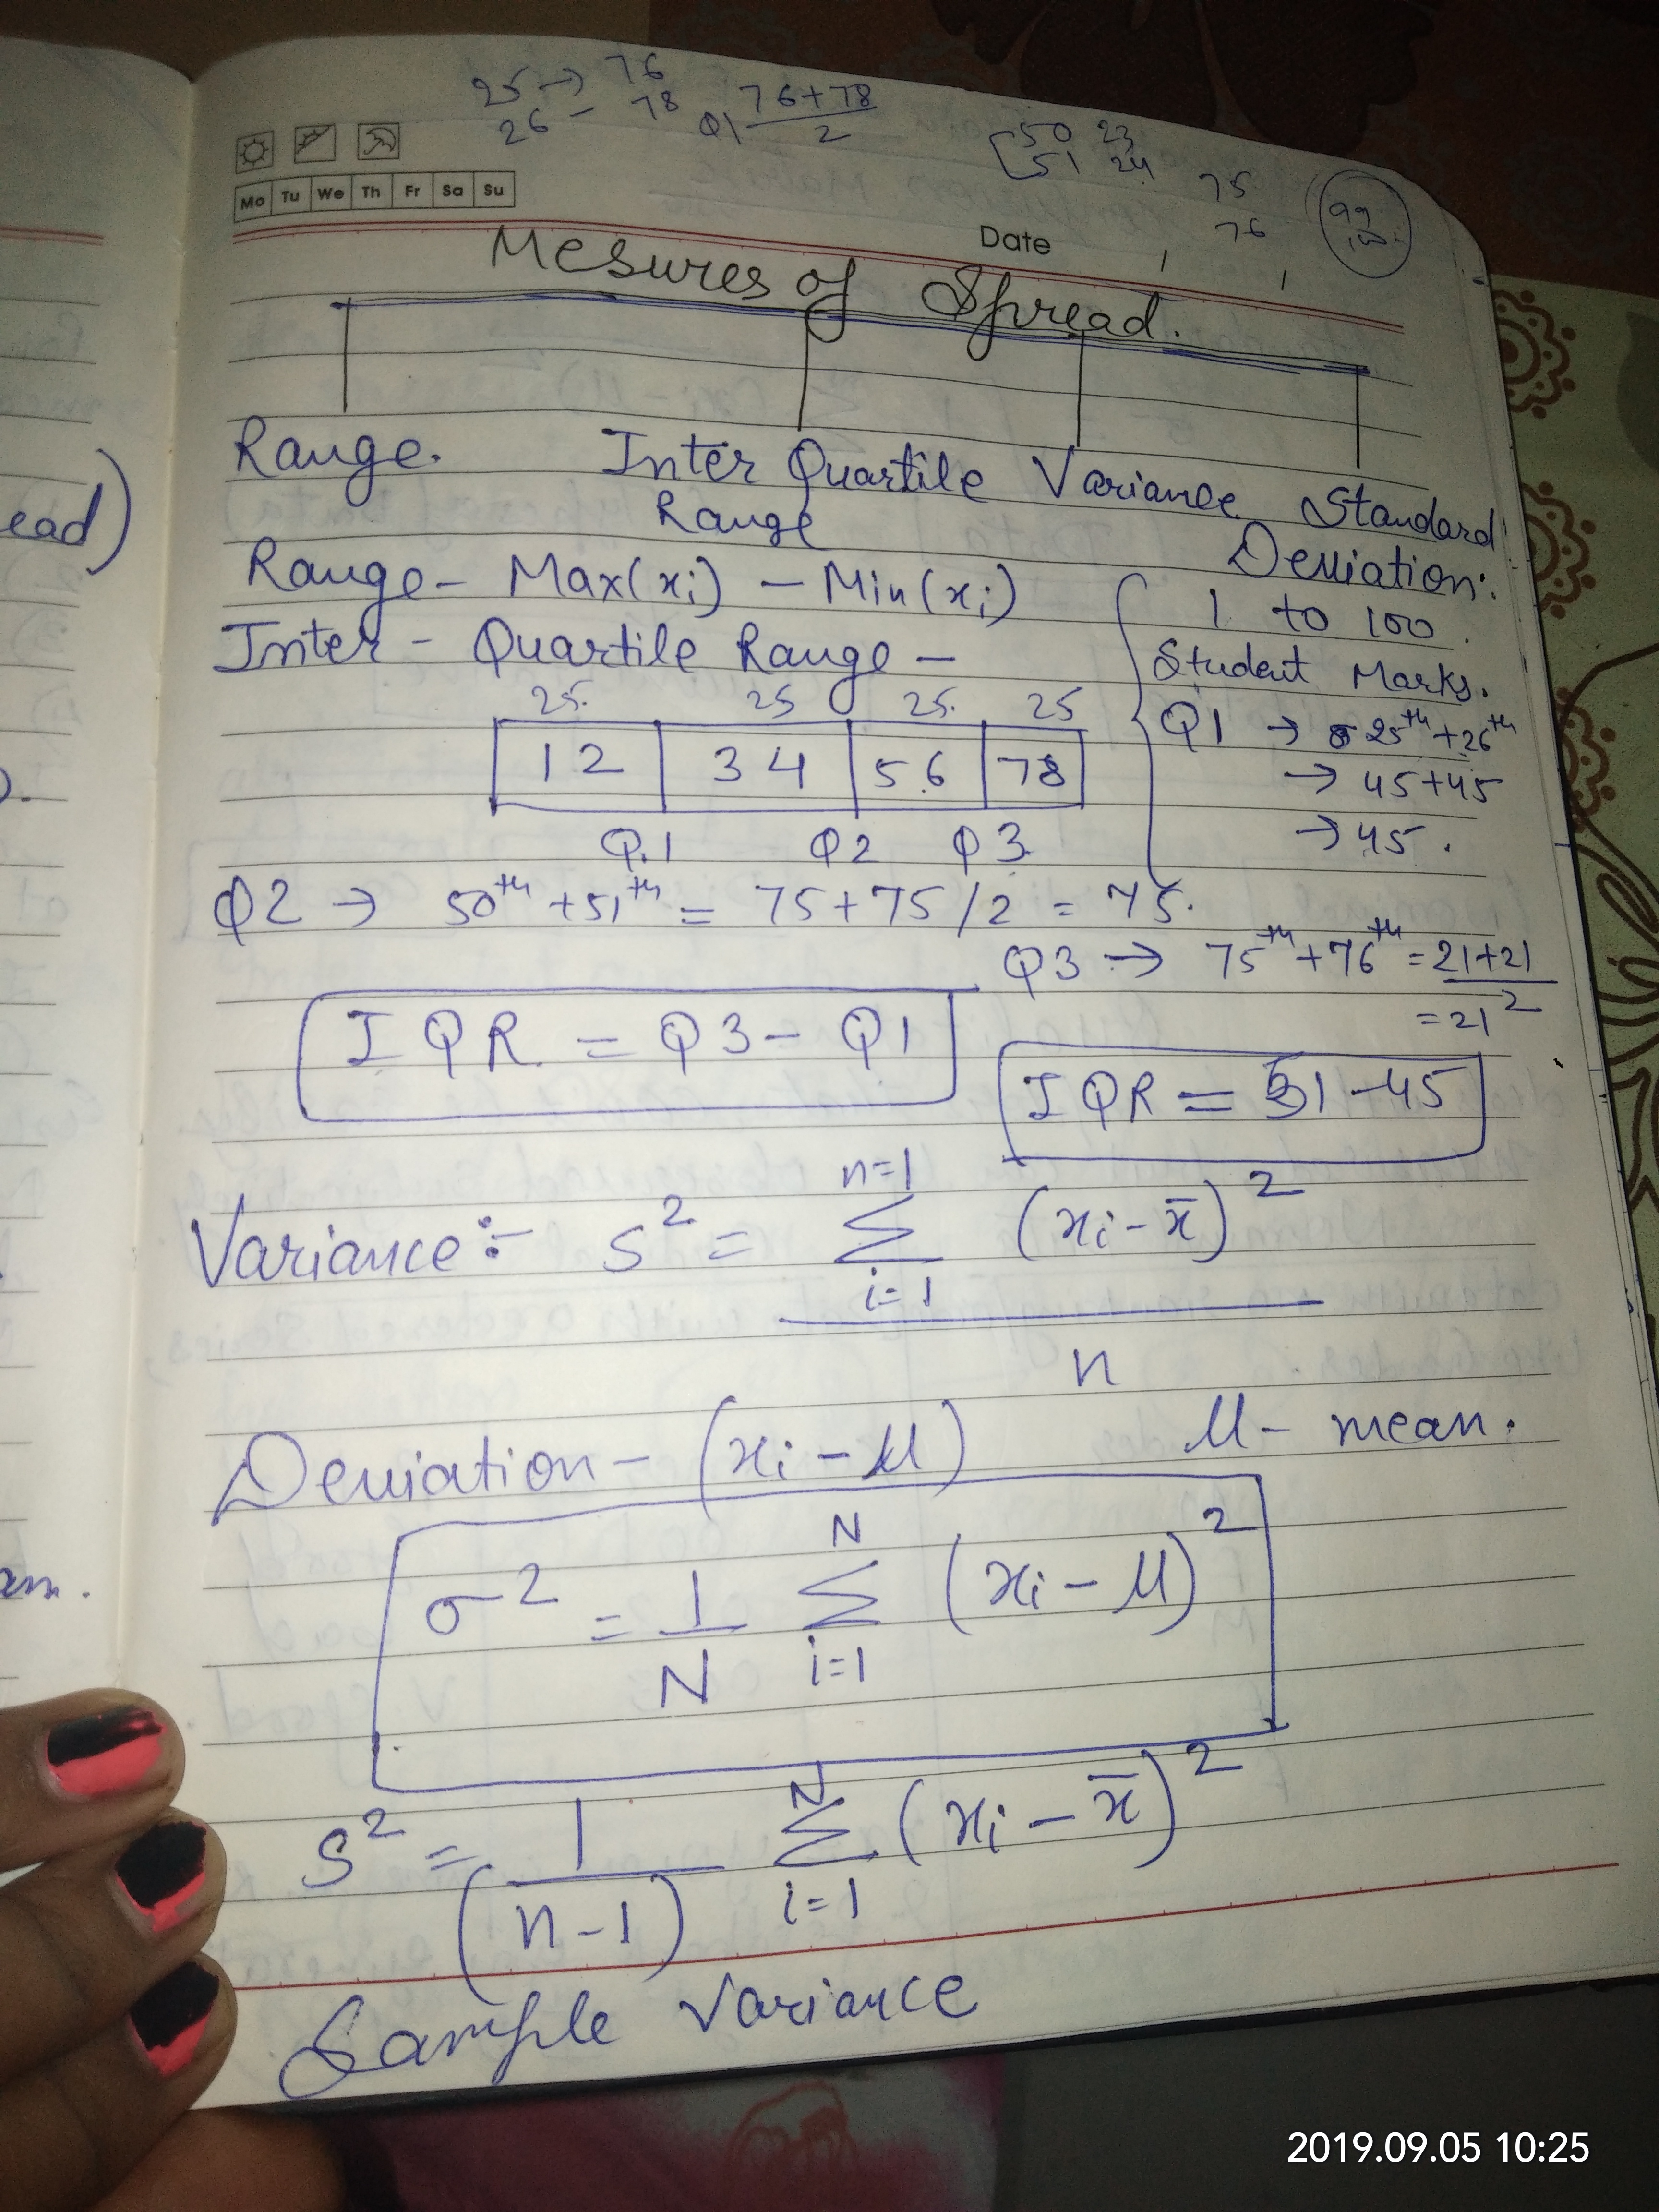 25 → 76
26 – 78 Q1 76+78 / 2
50 23
51 24
75
76
99
Mo Tu We Th Fr Sa Su
Date / /
Mesures of Spread.
Range. Inter Quartile Range Variance Standard Deviation:
Range – Max(xi) – Min(xi)
Inter – Quartile Range –
25. 25 25. 25
1 2 | 3 4 | 5.6 | 78
Q.1 Q2 Q3.
1 to 100.
Student Marks.
Q1 → 25th + 26th
→ 45+45
→ 45.
Q2 → 50th + 51th = 75+75/2 = 75.
Q3 → 75th + 76th = 21+21 / 2
= 21
IQR = Q3 – Q1
IQR = 51 – 45
Variance:– s² = n=1 Σ i=1 (xi – x̄)² / n
Deviation – (xi – μ) μ – mean.
σ² = 1/N N Σ i=1 (xi – μ)²
S² = 1/(n–1) N Σ i=1 (xi – x̄)²
Sample Variance
ead)
).
am.
2019.09.05 10:25